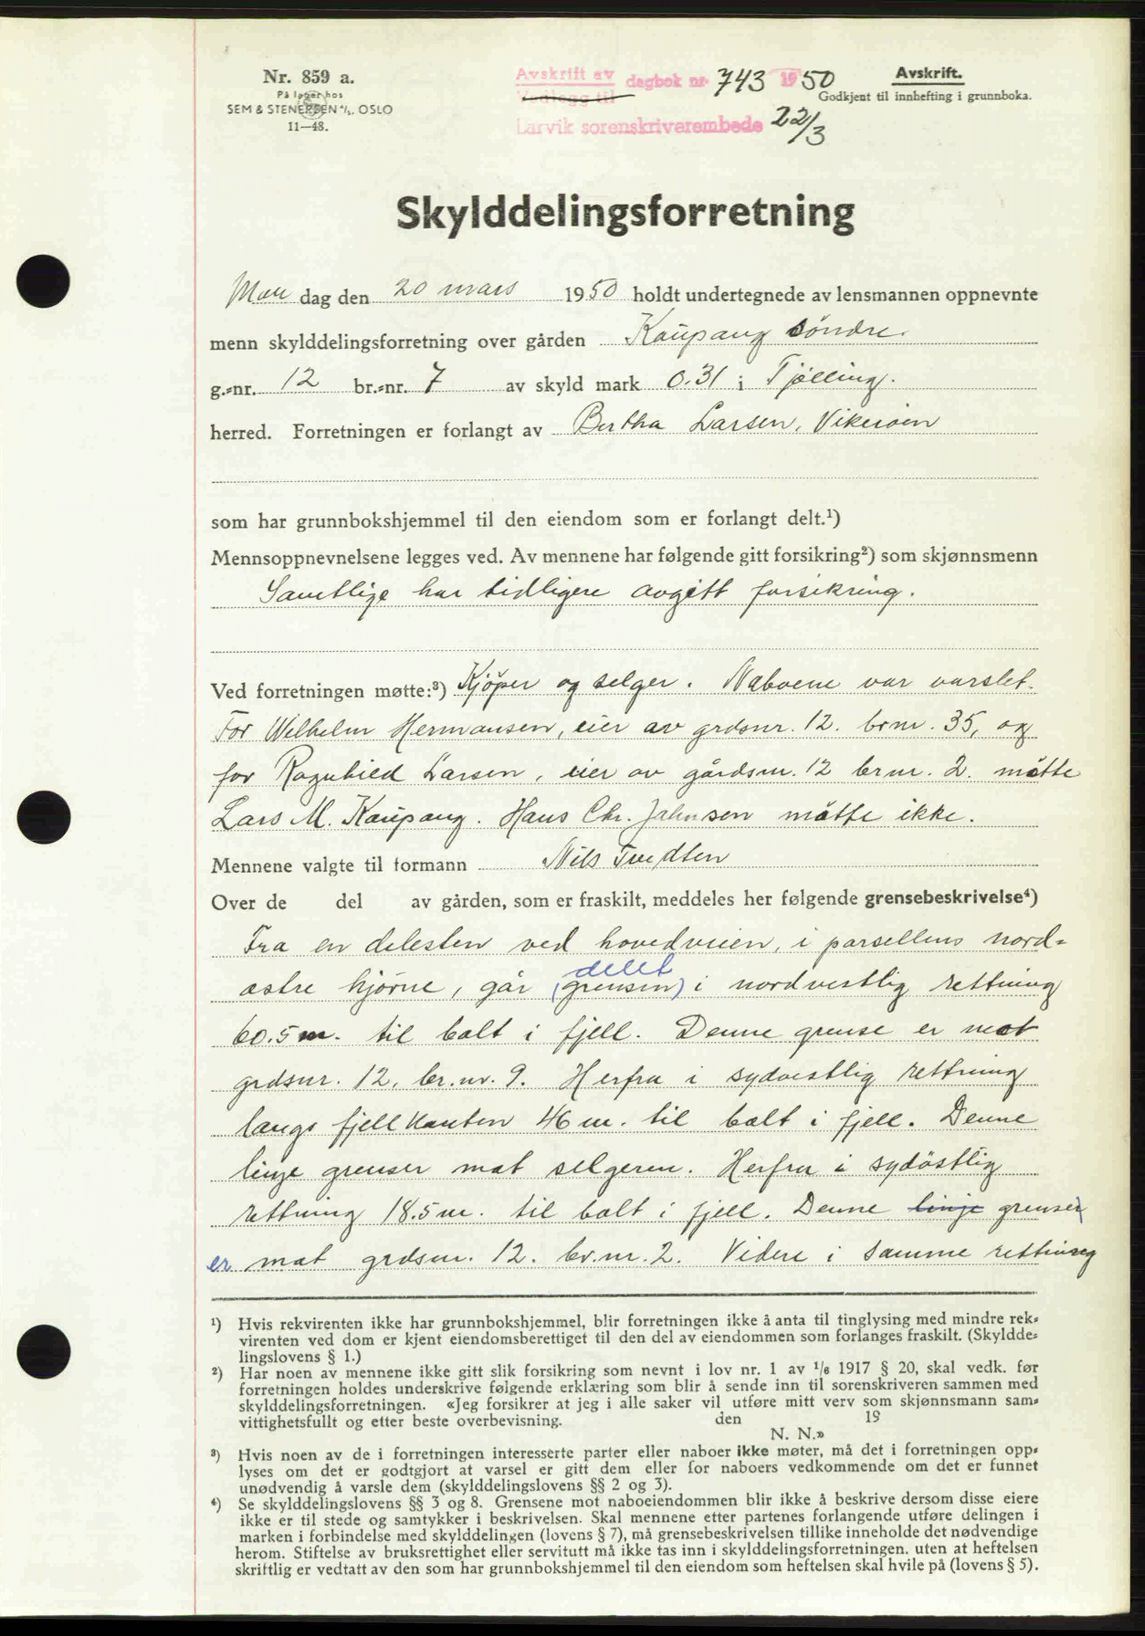 Nr. 859 a.
På lager hos
SEM & STENERSEN A/S. OSLO
11—48.
Avskrift av dagbok nr 743 1950
Vedlegg til
Larvik sorenskriverembede 22/3
Avskrift.
Godkjent til innhefting i grunnboka.
Skylddelingsforretning
Man dag den 20 mars 1950 holdt undertegnede av lensmannen oppnevnte
menn skylddelingsforretning over gården Kaupang söndre.
g.-nr. 12 br.-nr. 7 av skyld mark 0.31 i Tjølling.
herred. Forretningen er forlangt av Bertha Larsen, Vikeröen
som har grunnbokshjemmel til den eiendom som er forlangt delt.¹)
Mennsoppnevnelsene legges ved. Av mennene har følgende gitt forsikring²) som skjønnsmenn
Samtlige har tidligere avgitt forsikring.
Ved forretningen møtte:³) Kjöper og selger. Naboene var varslet.
For Wilhelm Hermansen, eier av grdsnr. 12. brnr. 35, og
for Ragnhild Larsen, eier av gårdsnr. 12 brnr. 2. møtte
Lars M. Kaupang. Hans Chr. Jahnsen møtte ikke.
Mennene valgte til formann Nils Tvedten
Over de del av gården, som er fraskilt, meddeles her følgende grensebeskrivelse⁴)
Fra en delesten ved hovedveien, i parsellens nord-
østre hjörne, går (grensen) delet i nordvestlig rettning
60.5 m. til bolt i fjell. Denne grense er mot
grdsnr. 12, br.nr. 9. Herfra i sydvestlig rettning
langs fjellkanten 46 m. til bolt i fjell. Denne
linje grenser mot selgeren. Herfra i sydöstlig
rettning 18.5 m. til bolt i fjell. Denne linje grenser
er mot grdsnr. 12. br.nr. 2. Videre i samme rettning
¹) Hvis rekvirenten ikke har grunnbokshjemmel, blir forretningen ikke å anta til tinglysing med mindre rek-
virenten ved dom er kjent eiendomsberettiget til den del av eiendommen som forlanges fraskilt. (Skyldde-
lingslovens § 1.)
²) Har noen av mennene ikke gitt slik forsikring som nevnt i lov nr. 1 av 1/6 1917 § 20, skal vedk. før
forretningen holdes underskrive følgende erklæring som blir å sende inn til sorenskriveren sammen med
skylddelingsforretningen. «Jeg forsikrer at jeg i alle saker vil utføre mitt verv som skjønnsmann sam-
vittighetsfullt og etter beste overbevisning. den 19
N. N.»
³) Hvis noen av de i forretningen interesserte parter eller naboer ikke møter, må det i forretningen opp-
lyses om det er godtgjort at varsel er gitt dem eller for naboers vedkommende om det er funnet
unødvendig å varsle dem (skylddelingslovens §§ 2 og 3).
⁴) Se skylddelingslovens §§ 3 og 8. Grensene mot naboeiendommen blir ikke å beskrive dersom disse eiere
ikke er til stede og samtykker i beskrivelsen. Skal mennene etter partenes forlangende utføre delingen i
marken i forbindelse med skylddelingen (lovens § 7), må grensebeskrivelsen tillike inneholde det nødvendige
herom. Stiftelse av bruksrettighet eller servitutt må ikke tas inn i skylddelingsforretningen. uten at heftelsen
skriftlig er vedtatt av den som har grunnbokshjemmel til den eiendom som heftelsen skal hvile på (lovens § 5).